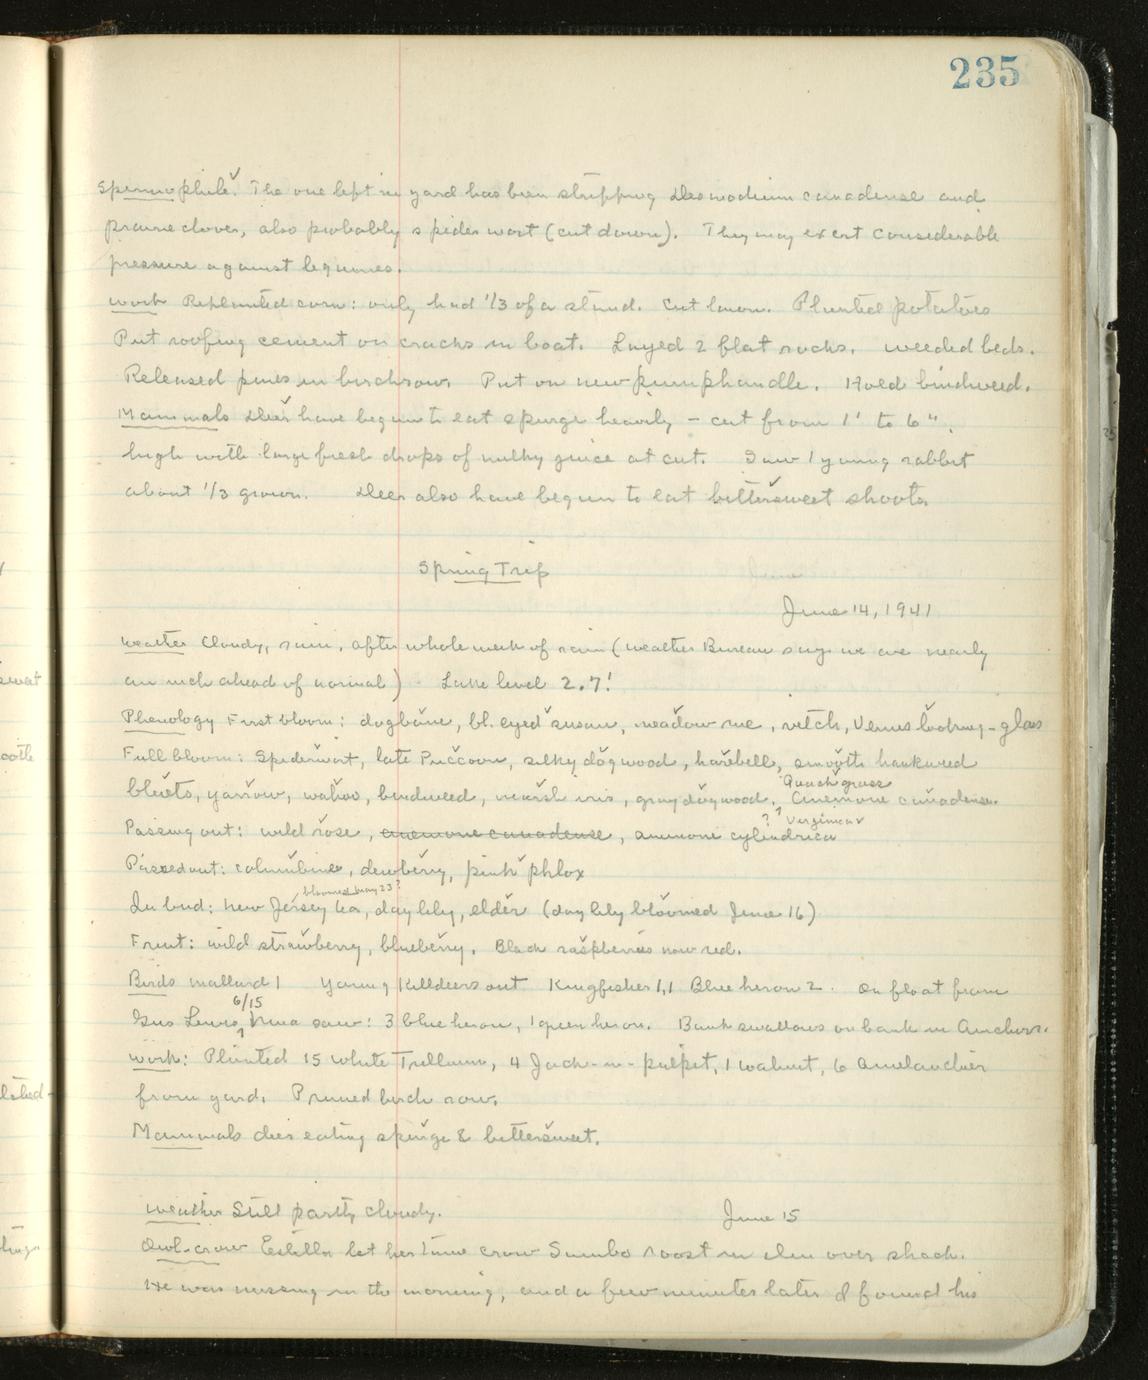 235
Spermophile. The one left in yard has been stripping Desmodium canadense and
prairie clover, also probably spiderwort (cut down). They may exert considerable
pressure against legumes.
Work Replanted corn: only had 1/3 of a stand. Cut lawn. Planted potatoes
Put roofing cement on cracks in boat. Layed 2 flat rocks. Weeded beds.
Released pines in birchrow. Put on new pumphandle. Hoed bindweed.
Mammals Deer have begun to eat spurge heavily - cut from 1' to 6"
high with large fresh drops of milky juice at cut. Saw 1 young rabbit
about 1/3 grown. Deer also have begun to eat bittersweet shoots.
Spring Trip
June
June 14, 1941
Weather Cloudy, rain, after whole week of rain (Weather Bureau says we are nearly
an inch ahead of normal) Lake level 2.7!
Phenology First bloom: dogbane, bl. eyed susan, meadow rue, vetch, Venus looking-glass
Full bloom: Spiderwort, late Puccoon, silky dogwood, harebell, smooth hawkweed
Quack grass
bluets, yarrow, wahoo, bindweed, marsh iris, gray dogwood, Anemone canadense.
? ? Virginica
Passing out: wild rose, anemone canadense, anemone cylindrica
Passed out: columbine, dewberry, pink phlox
bloomed May 23?
In bud: New Jersey tea, day lily, elder (day lily bloomed June 16)
Fruit: wild strawberry, blueberry. Black raspberries now red.
Birds mallard 1 Young Killdeers out Kingfisher 1,1 Blue heron 2. On float from
6/15
Gus Lewis, Nina saw: 3 blue heron, 1 green heron. Bank swallows on bank in Anchors.
Work: Planted 15 white Trillium, 4 Jack-in-pulpit, 1 walnut, 6 Amelanchier
from yard. Pruned birch row.
Mammals deer eating spurge & bittersweet.
Weather Still partly cloudy. June 15
Owl-crow Estella let her tame crow Sumbo roost in elm over shack.
He was missing in the morning, and a few minutes later I found his